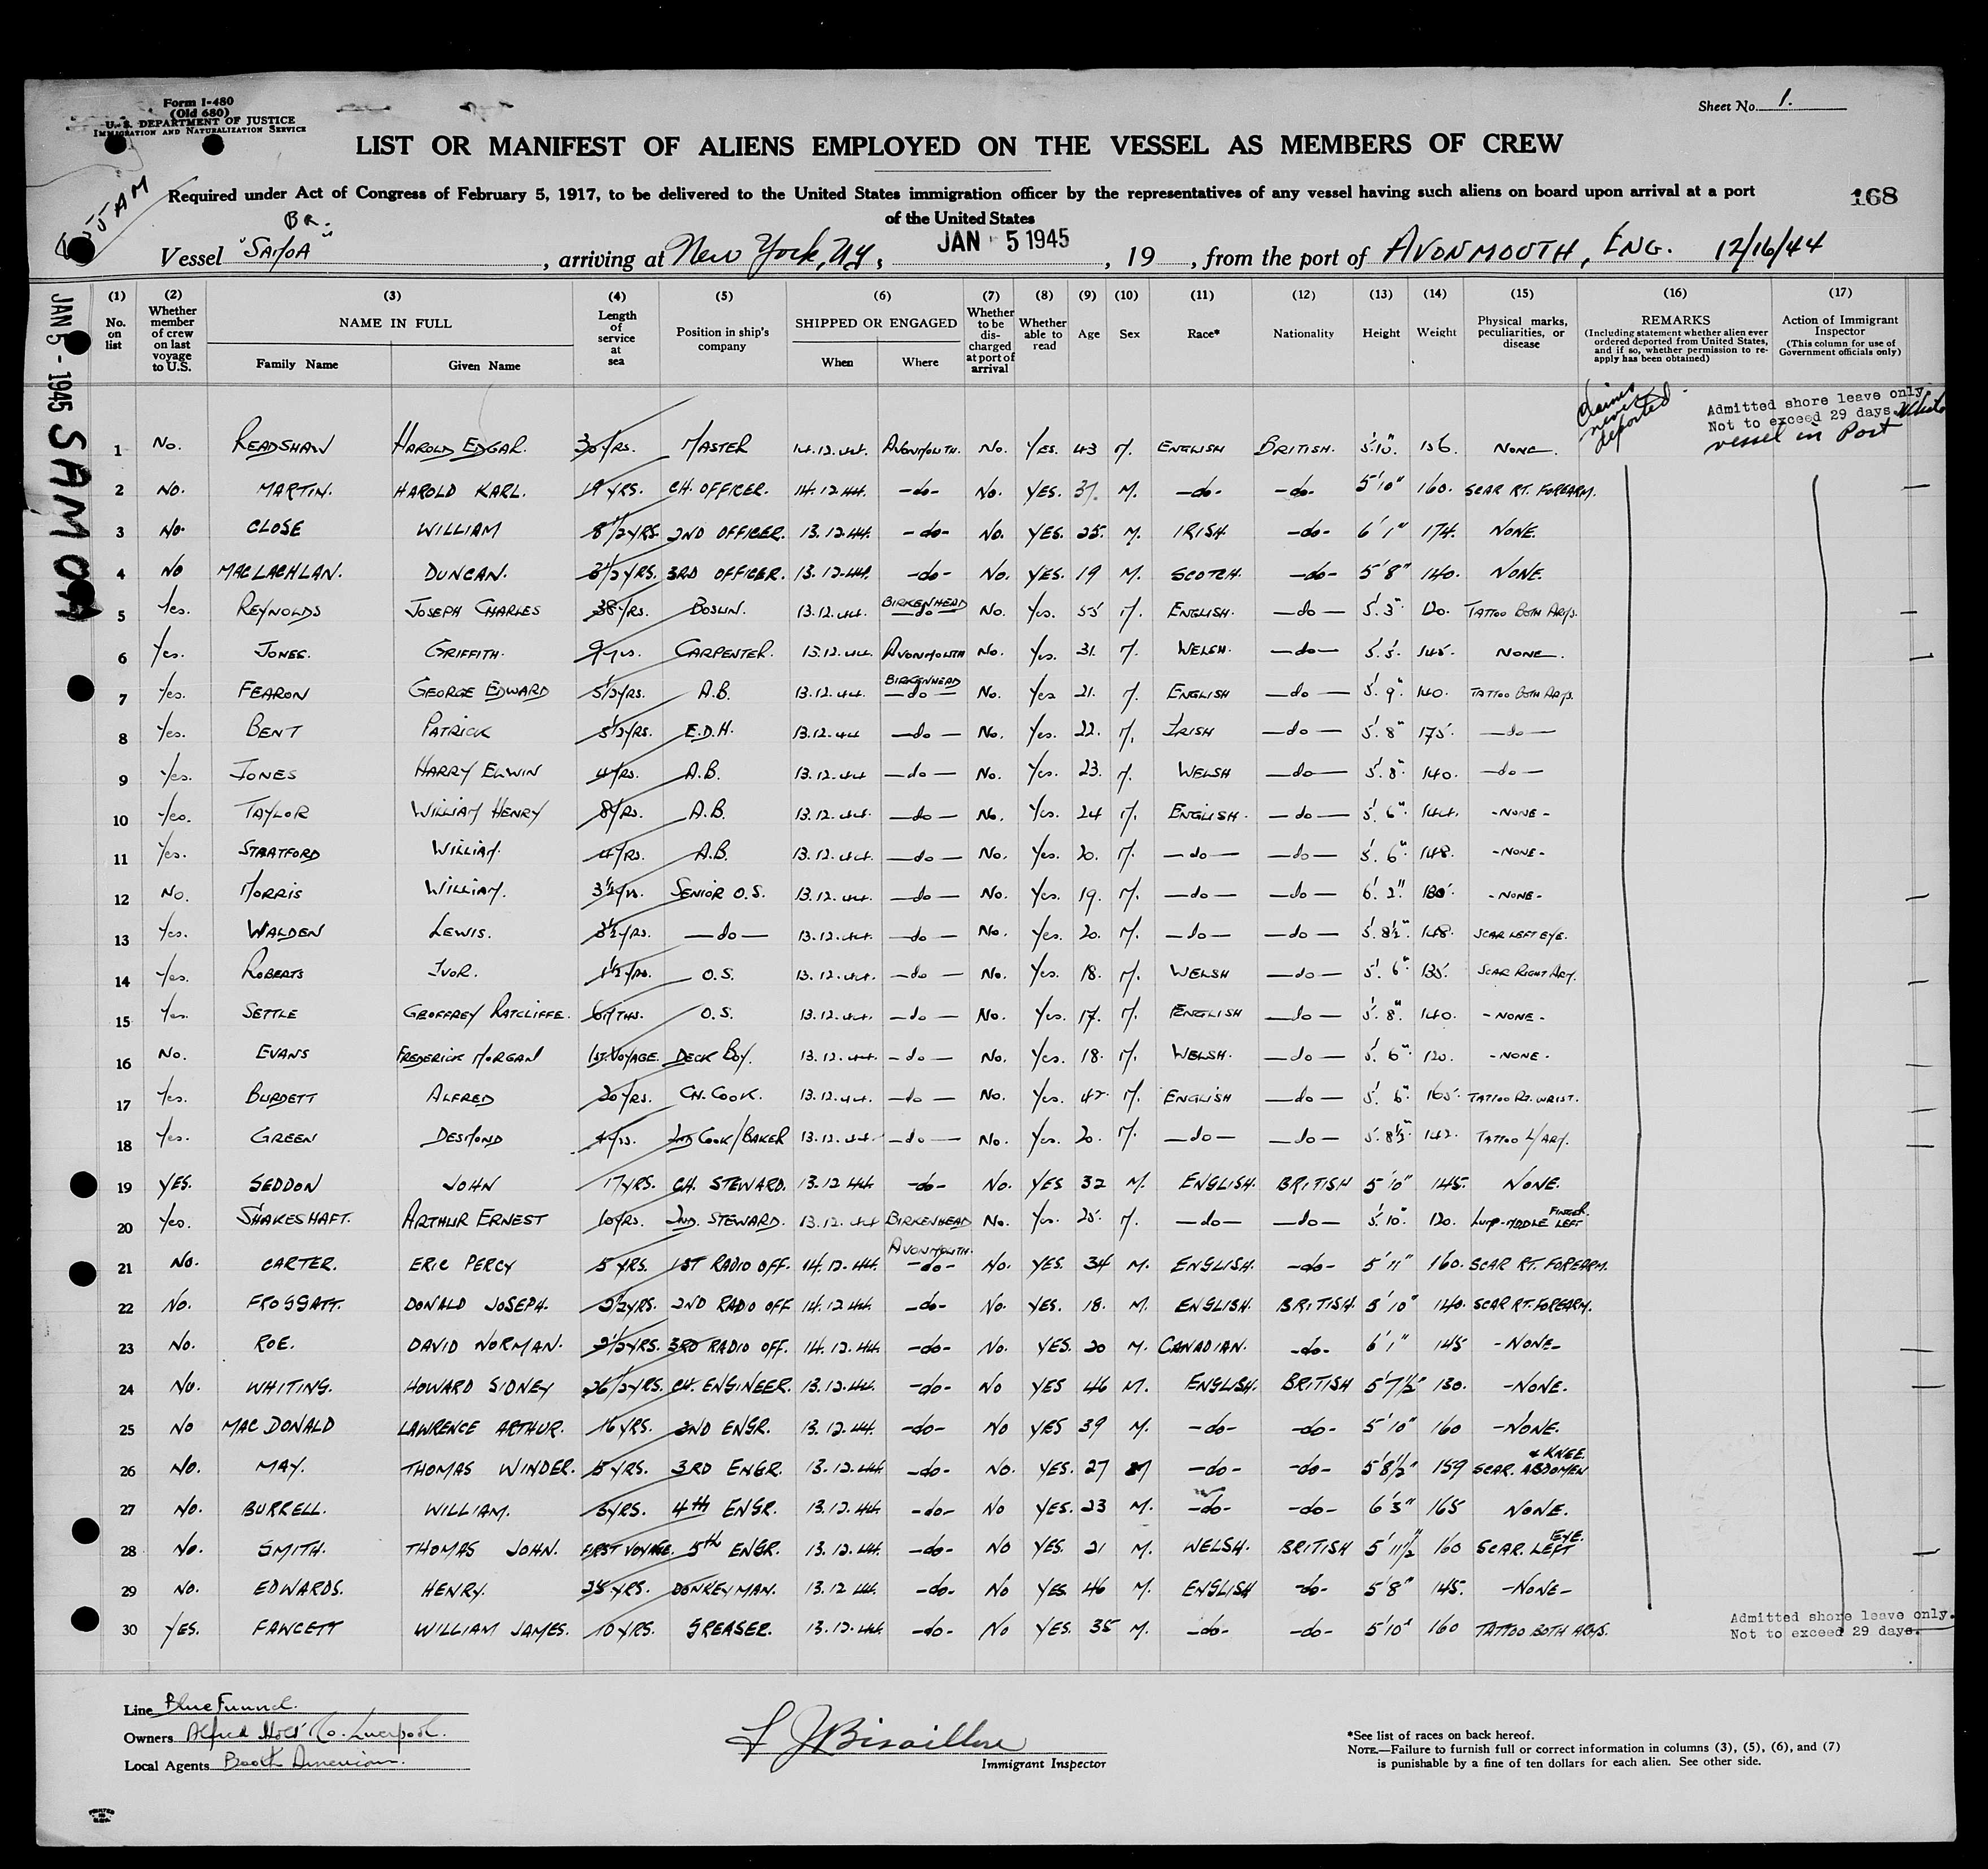 Form I-480
(Old 680)
U. S. DEPARTMENT OF JUSTICE
IMMIGRATION AND NATURALIZATION SERVICE
Sheet No. 1.
LIST OR MANIFEST OF ALIENS EMPLOYED ON THE VESSEL AS MEMBERS OF CREW
Required under Act of Congress of February 5, 1917, to be delivered to the United States immigration officer by the representatives of any vessel having such aliens on board upon arrival at a port
of the United States
168
Vessel BR. "SAMOA", arriving at New York, NY, JAN 5 1945, 19 , from the port of AVONMOUTH, ENG. 12/16/44
JAN 5 - 1945 SAMOA
(1) No. on list (2) Whether member of crew on last voyage to U.S. (3) NAME IN FULL Family Name Given Name (4) Length of service at sea (5) Position in ship's company (6) SHIPPED OR ENGAGED When Where (7) Whether to be discharged at port of arrival (8) Whether able to read (9) Age (10) Sex (11) Race* (12) Nationality (13) Height (14) Weight (15) Physical marks, peculiarities, or disease (16) REMARKS (Including statement whether alien ever ordered deported from United States, and if so, whether permission to reapply has been obtained) (17) Action of Immigrant Inspector (This column for use of Government officials only)
Claims never deported
Admitted shore leave only.
Not to exceed 29 days While
vessel in Port
1 No. READSHAW HAROLD EDGAR. 30 YRS. MASTER 14.12.44. AVONMOUTH. No. YES. 43 M. ENGLISH BRITISH. 5'.10". 156. NONE.
2 NO. MARTIN. HAROLD KARL. 19 YRS. CH. OFFICER. 14.12.44. -do- NO. YES. 37. M. -do- -do- 5'10" 160. SCAR RT. FOREARM.
3 NO. CLOSE WILLIAM 8 1/2 YRS. 2ND OFFICER. 13.12.44. -do- NO. YES. 25. M. IRISH -do- 6'1" 174. NONE.
4 NO MACLACHLAN. DUNCAN. 3 1/2 YRS. 3RD OFFICER. 13.12.44. -do- NO. YES. 19 M. SCOTCH. -do- 5'8" 140. NONE.
5 Yes. REYNOLDS JOSEPH CHARLES 38 YRS. BOSUN. 13.12.44. BIRKENHEAD No. Yes. 55 M. ENGLISH. -do- 5'.3". 120. TATTOO BOTH ARMS.
6 Yes. JONES. GRIFFITH. 9 yrs. CARPENTER. 13.12.44. AVONMOUTH No. Yes. 31. M. WELSH. -do- 5'.5". 145. NONE.
7 Yes. FEARON GEORGE EDWARD 5 1/2 YRS. A.B. 13.12.44. BIRKENHEAD -do- No. Yes 21. M. ENGLISH -do- 5'.9". 140. TATTOO BOTH ARMS.
8 Yes. BENT PATRICK 5 1/2 YRS. E.D.H. 13.12.44 -do- No. Yes. 22. M. IRISH -do- 5'.8" 175. -do-
9 Yes. JONES HARRY ELWIN 4 YRS. A.B. 13.12.44 -do- No. Yes. 23. M. WELSH -do- 5'.8". 140. -do-
10 Yes. TAYLOR WILLIAM HENRY 8 YRS. A.B. 13.12.44. -do- No. Yes. 24 M. ENGLISH. -do- 5'.6". 144. -NONE-
11 Yes. STRATFORD WILLIAM. 4 YRS. A.B. 13.12.44. -do- No. Yes. 20. M. -do- -do- 5'.6". 148. -NONE-
12 No. MORRIS WILLIAM. 3 1/2 yrs. SENIOR O.S. 13.12.44. -do- No. Yes. 19. M. -do- -do- 6'.2" 180. -NONE-
13 Yes. WALDEN LEWIS. 3 1/2 YRS. -do- 13.12.44. -do- No. Yes. 20. M. -do- -do- 5'.8 1/2". 148. SCAR LEFT EYE.
14 Yes. ROBERTS IVOR. 1 1/2 yrs. O.S. 13.12.44. -do- No. Yes. 18. M. WELSH -do- 5'.6". 135. SCAR RIGHT ARM.
15 Yes. SETTLE GEOFFREY RATCLIFFE. 6 MTHS. O.S. 13.12.44. -do- No. Yes. 17. M. ENGLISH -do- 5'.8". 140. -NONE-
16 No. EVANS FREDERICK MORGAN 1ST. VOYAGE. DECK BOY. 13.12.44. -do- No. Yes. 18. M. WELSH. -do- 5'.6". 120. -NONE-
17 Yes. BURDETT ALFRED 20 YRS. CH. COOK. 13.12.44. -do- No. Yes. 42. M. ENGLISH -do- 5'.6". 165. TATTOO RT. WRIST.
18 Yes. GREEN DESMOND 4 yrs. 2ND COOK/BAKER 13.12.44. -do- No. Yes. 20. M. -do- -do- 5'.8 1/2" 142. TATTOO L/ARM.
19 YES. SEDDON JOHN 17 YRS. CH. STEWARD. 13.12.44. -do- NO. YES 32 M. ENGLISH. BRITISH 5'10" 145. NONE.
20 Yes. SHAKESHAFT. ARTHUR ERNEST 10 YRS. 2ND. STEWARD. 13.12.44 BIRKENHEAD No. Yes. 25. M. -do- -do- 5'.10". 120. LUMP-MIDDLE LEFT FINGER.
21 NO. CARTER. ERIC PERCY 5 YRS. 1ST RADIO OFF. 14.12.44. AVONMOUTH. -do- NO. YES. 34 M. ENGLISH. -do- 5'11" 160. SCAR RT. FOREARM.
22 NO. FROGGATT. DONALD JOSEPH. 2 1/2 YRS. 2ND RADIO OFF 14.12.44. -do- NO. YES. 18. M. ENGLISH. BRITISH. 5'10" 140. SCAR RT. FOREARM.
23 NO. ROE. DAVID NORMAN. 2 1/2 YRS. 3RD RADIO OFF. 14.12.44. -do- NO. YES. 20 M. CANADIAN. -do- 6'1" 145 -NONE-
24 NO. WHITING. HOWARD SIDNEY 26 1/2 YRS. CH. ENGINEER. 13.12.44. -do- NO YES 46 M. ENGLISH. BRITISH 5'7 1/2" 130. -NONE.
25 NO MAC DONALD LAWRENCE ARTHUR. 16 YRS. 2ND ENGR. 13.12.44. -do- NO YES 39 M. -do- -do- 5'10" 160 -NONE.
26 NO. MAY. THOMAS WINDER. 5 YRS. 3RD ENGR. 13.12.44 -do- NO. YES. 27 M -do- -do- 5'8 1/2" 159 SCAR. ABDOMEN & KNEE.
27 NO. BURRELL. WILLIAM. 3 YRS. 4th ENGR. 13.12.44. -do- NO YES. 23 M. -do- -do- 6'3" 165 NONE.
28 NO. SMITH. THOMAS JOHN. FIRST VOYAGE. 5th ENGR. 13.12.44. -do- NO YES. 21 M. WELSH. BRITISH 5'11 1/2" 160 SCAR. LEFT EYE.
29 NO. EDWARDS. HENRY. 25 YRS. DONKEYMAN. 13.12.44. -do- NO YES 46 M. ENGLISH -do- 5'8" 145. -NONE-
30 YES. FAWCETT WILLIAM JAMES. 10 YRS. GREASER. 13.12.44 -do- NO YES. 35 M. -do- -do- 5'10" 160 TATTOO BOTH ARMS.
Admitted shore leave only.
Not to exceed 29 days.
Line Blue Funnel.
Owners Alfred Holt Co. Liverpool.
Local Agents Booth American.
Immigrant Inspector
*See list of races on back hereof.
NOTE.—Failure to furnish full or correct information in columns (3), (5), (6), and (7)
is punishable by a fine of ten dollars for each alien. See other side.